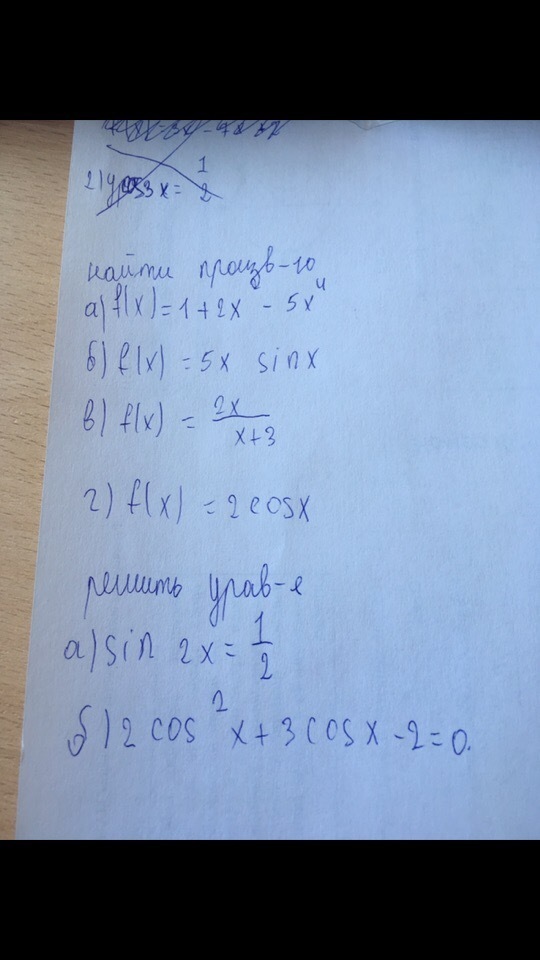 2) cos3x = 1/2
найти произв-ю
а) f(x) = 1 + 2x - 5x⁴
б) f(x) = 5x sinx
в) f(x) = 2x/x+3
г) f(x) = 2cosx
решить урав-е
а) sin 2x = 1/2
б) 2 cos²x + 3cosx - 2 = 0.